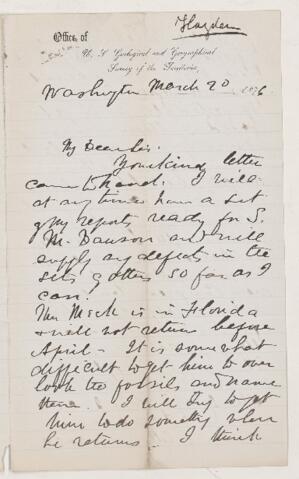 Hayden
Office of
U. S. Geological and Geographical
Survey of the Territories,
Washington March 20 1876
My Dear Sir.
Your kind letter
came to hand. I will
at any time have a set
of my reports ready for
M. Dawson and will
supply any defect in the
sets of others so far as I
can.
Mr Meek is in Florida
& will not return before
April - It is somewhat
difficult to get him to over
look the fossils and name
them. I will try to get
him to do something when
he returns. I think